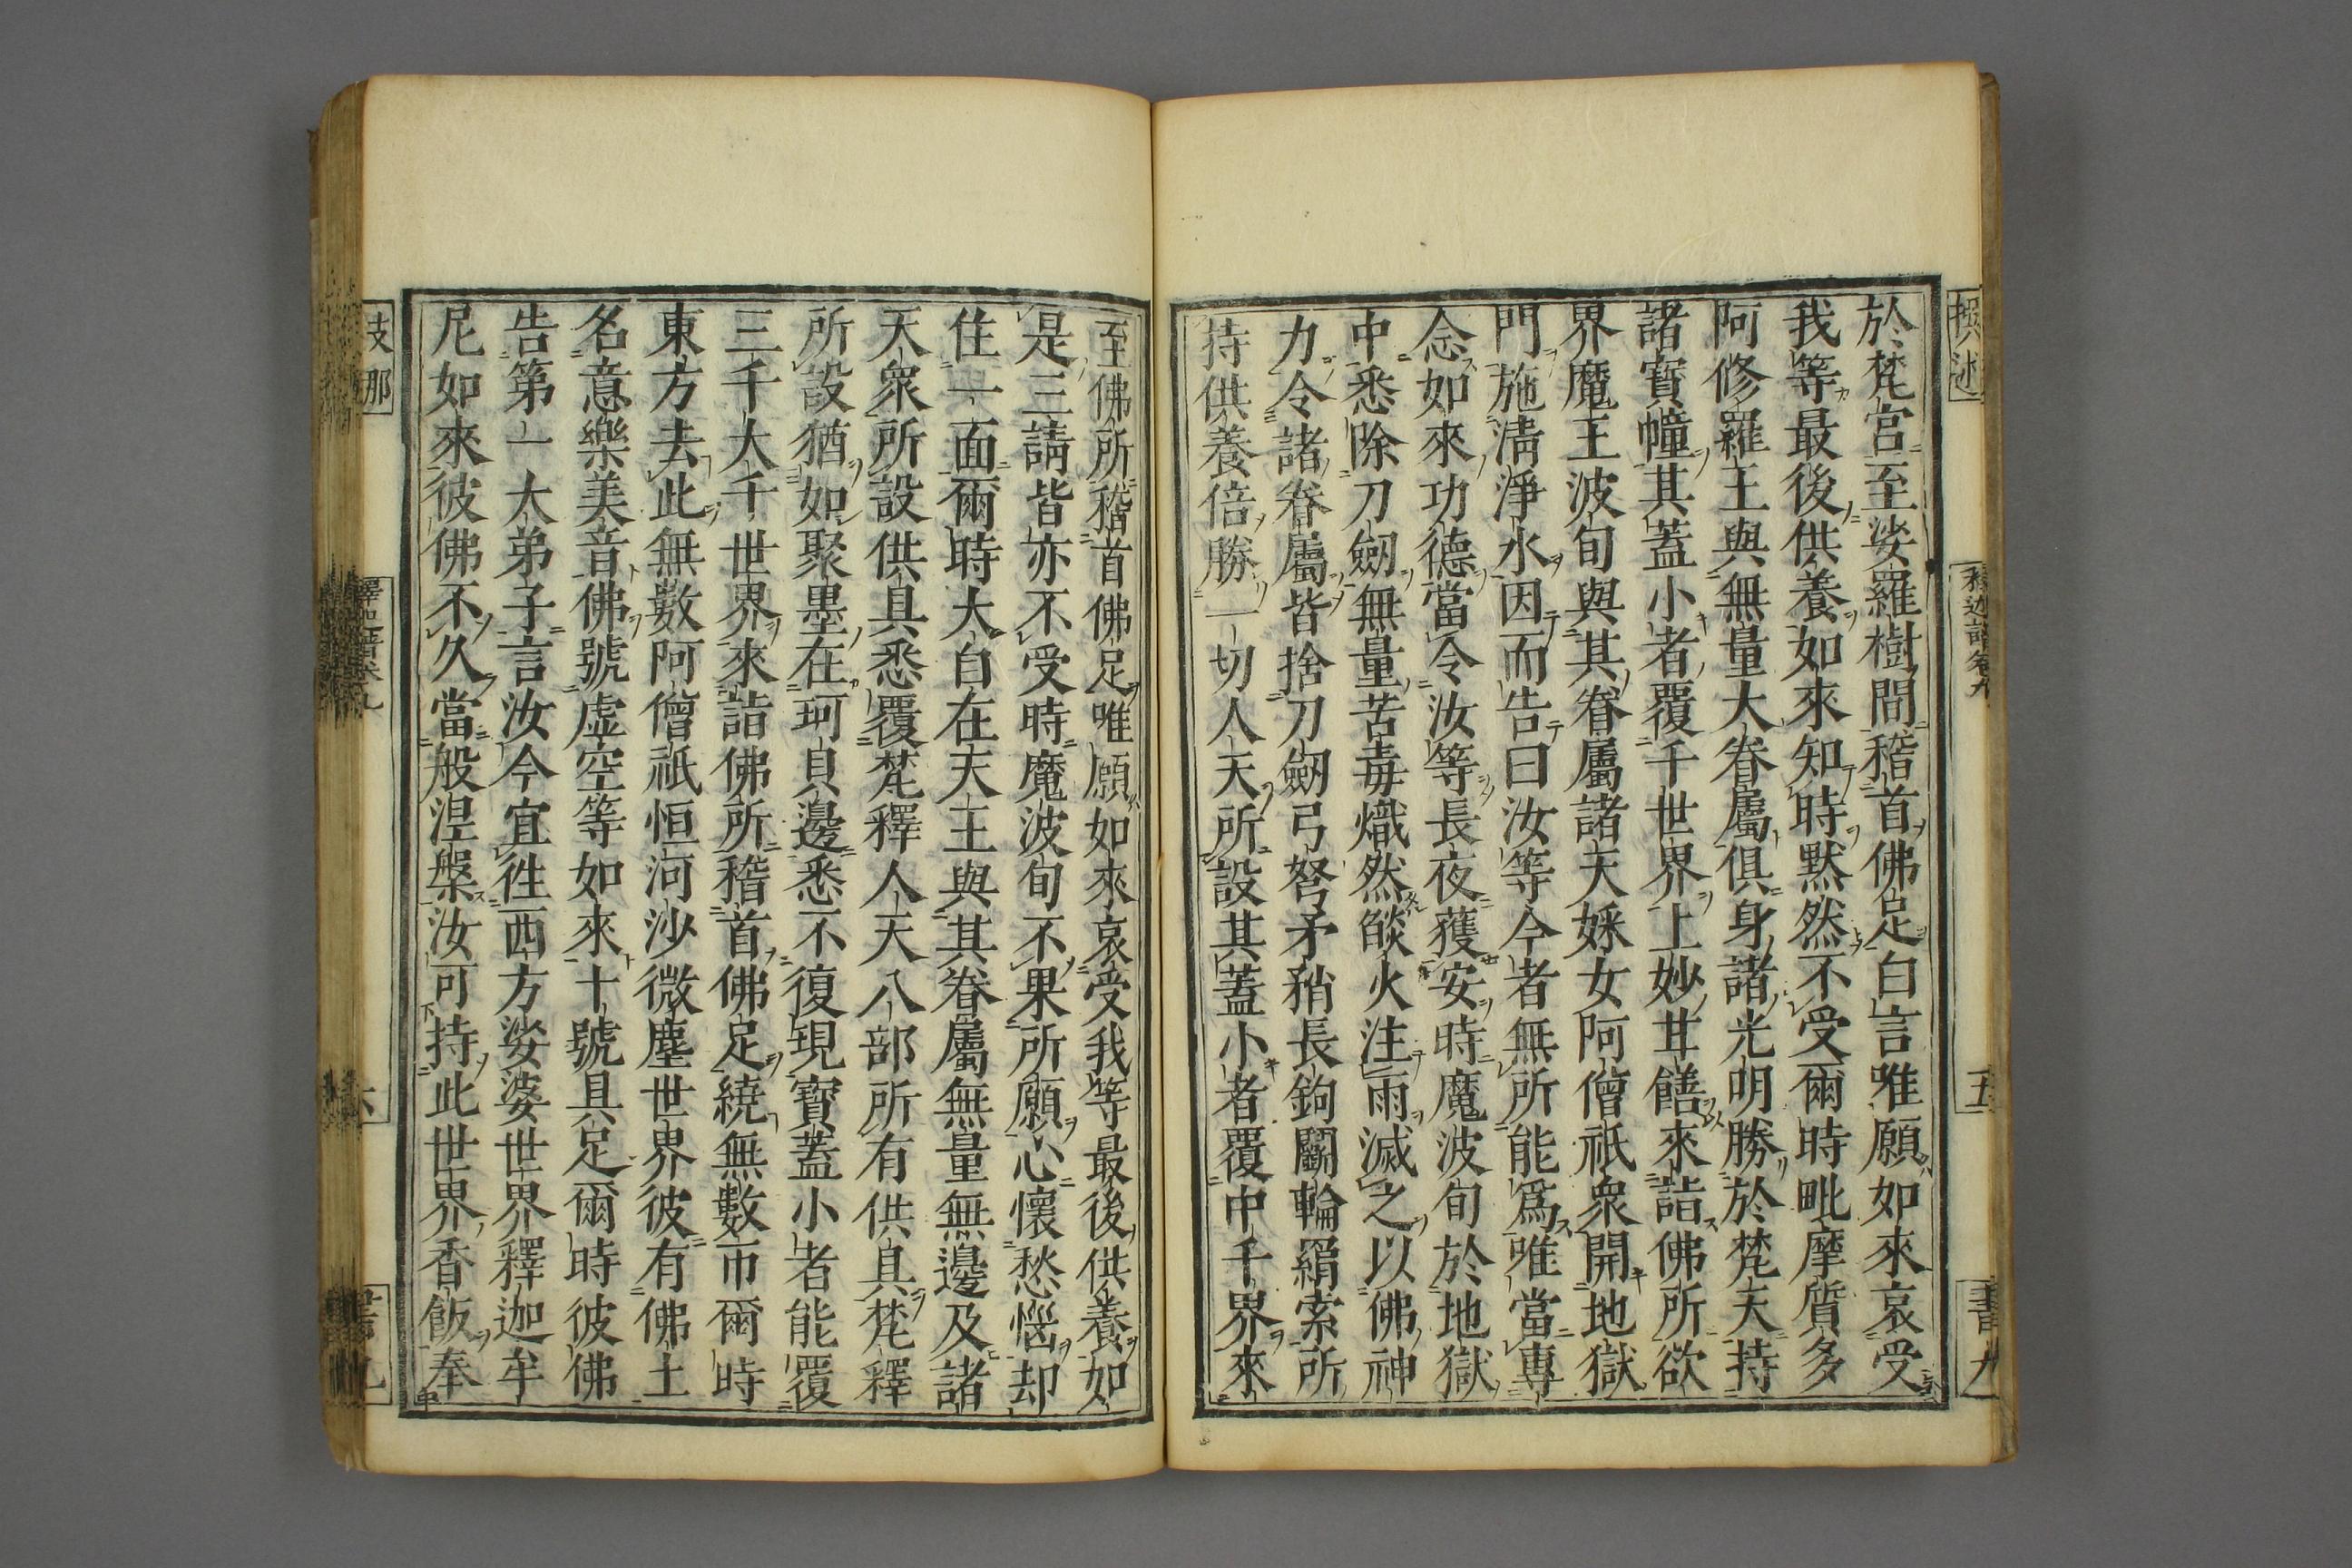 撰述
釋迦譜卷九
五
書九
於梵宮至娑羅樹間稽首佛足白言唯願如來哀受
我等最後供養如來知時默然不受爾時毗摩質多
阿修羅王與無量大眷屬俱身諸光明勝於梵天持
諸寶幢其蓋小者覆千世界上妙甘饍來詣佛所欲
界魔王波旬與其眷屬諸天婇女阿僧祇衆開地獄
門施清淨水因而告曰汝等今者無所能爲唯當專
念如來功德當令汝等長夜獲安時魔波旬於地獄
中悉除刀劒無量苦毒熾然𦦨火注雨滅之以佛神
力令諸眷屬皆捨刀劒弓弩矛矟長鉤鬭輪羂索所
持供養倍勝一切人天所設其蓋小者覆中千界來
至佛所稽首佛足唯願如來哀受我等最後供養如
是三請皆亦不受時魔波旬不果所願心懷愁惱却
住一面爾時大自在天王與其眷屬無量無邊及諸
天衆所設供具悉覆梵釋人天八部所有供具梵釋
所設猶如聚墨在珂貝邊悉不復現寶蓋小者能覆
三千大千世界來詣佛所稽首佛足繞無數帀爾時
東方去此無數阿僧祇恒河沙微塵世界彼有佛土
名意樂美音佛號虛空等如來十號具足爾時彼佛
告第一大弟子言汝今宜徃西方娑婆世界釋迦牟
尼如來彼佛不久當般涅槃汝可持此世界香飯奉
支那
釋迦譜卷九
六
書九